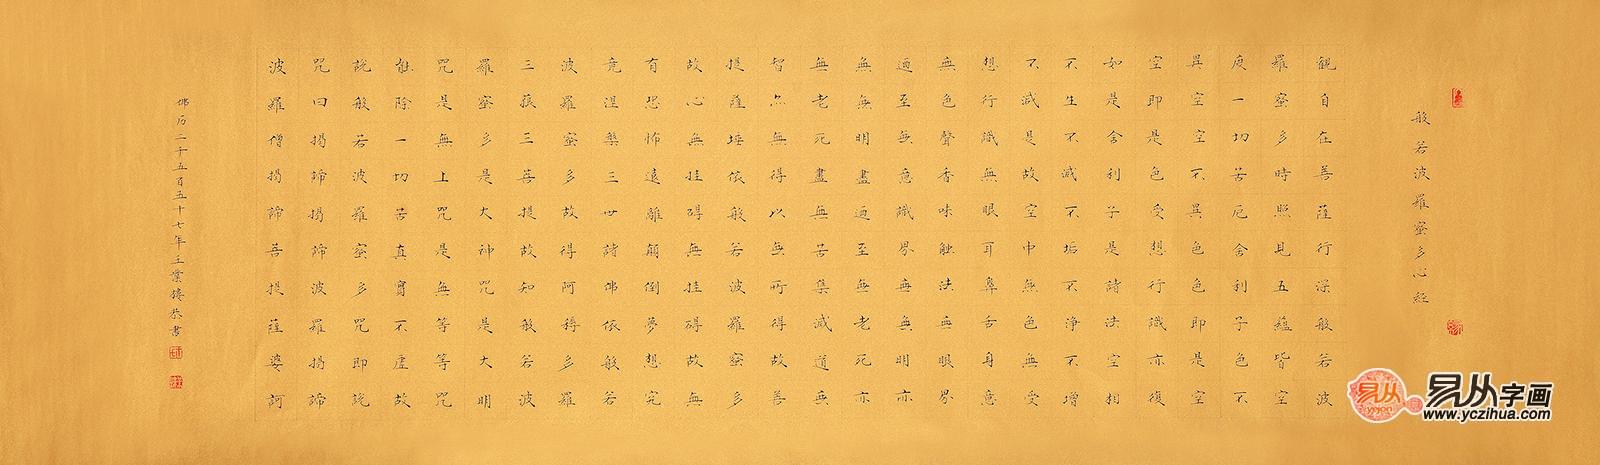 般若波羅蜜多心經
觀自在菩薩行深般若波
羅蜜多時照見五蘊皆空
度一切苦厄舍利子色不
異空空不異色色即是空
空即是色受想行識亦復
如是舍利子是諸法空相
不生不滅不垢不淨不增
不減是故空中無色無受
想行識無眼耳鼻舌身意
無色聲香味觸法無眼界
迺至無意識界無無明亦
無無明盡迺至無老死亦
無老死盡無苦集滅道無
智亦無得以無所得故菩
提薩埵依般若波羅蜜多
故心無挂礙無挂礙故無
有恐怖遠離顛倒夢想究
竟涅槃三世諸佛依般若
波羅蜜多故得阿耨多羅
三藐三菩提故知般若波
羅蜜多是大神咒是大明
咒是無上咒是無等等咒
能除一切苦真實不虛故
說般若波羅蜜多咒即說
咒曰揭諦揭諦波羅揭諦
波羅僧揭諦菩提薩婆訶
佛历二千五百五十七年王葉
書
易从字画
www.yczihua.com